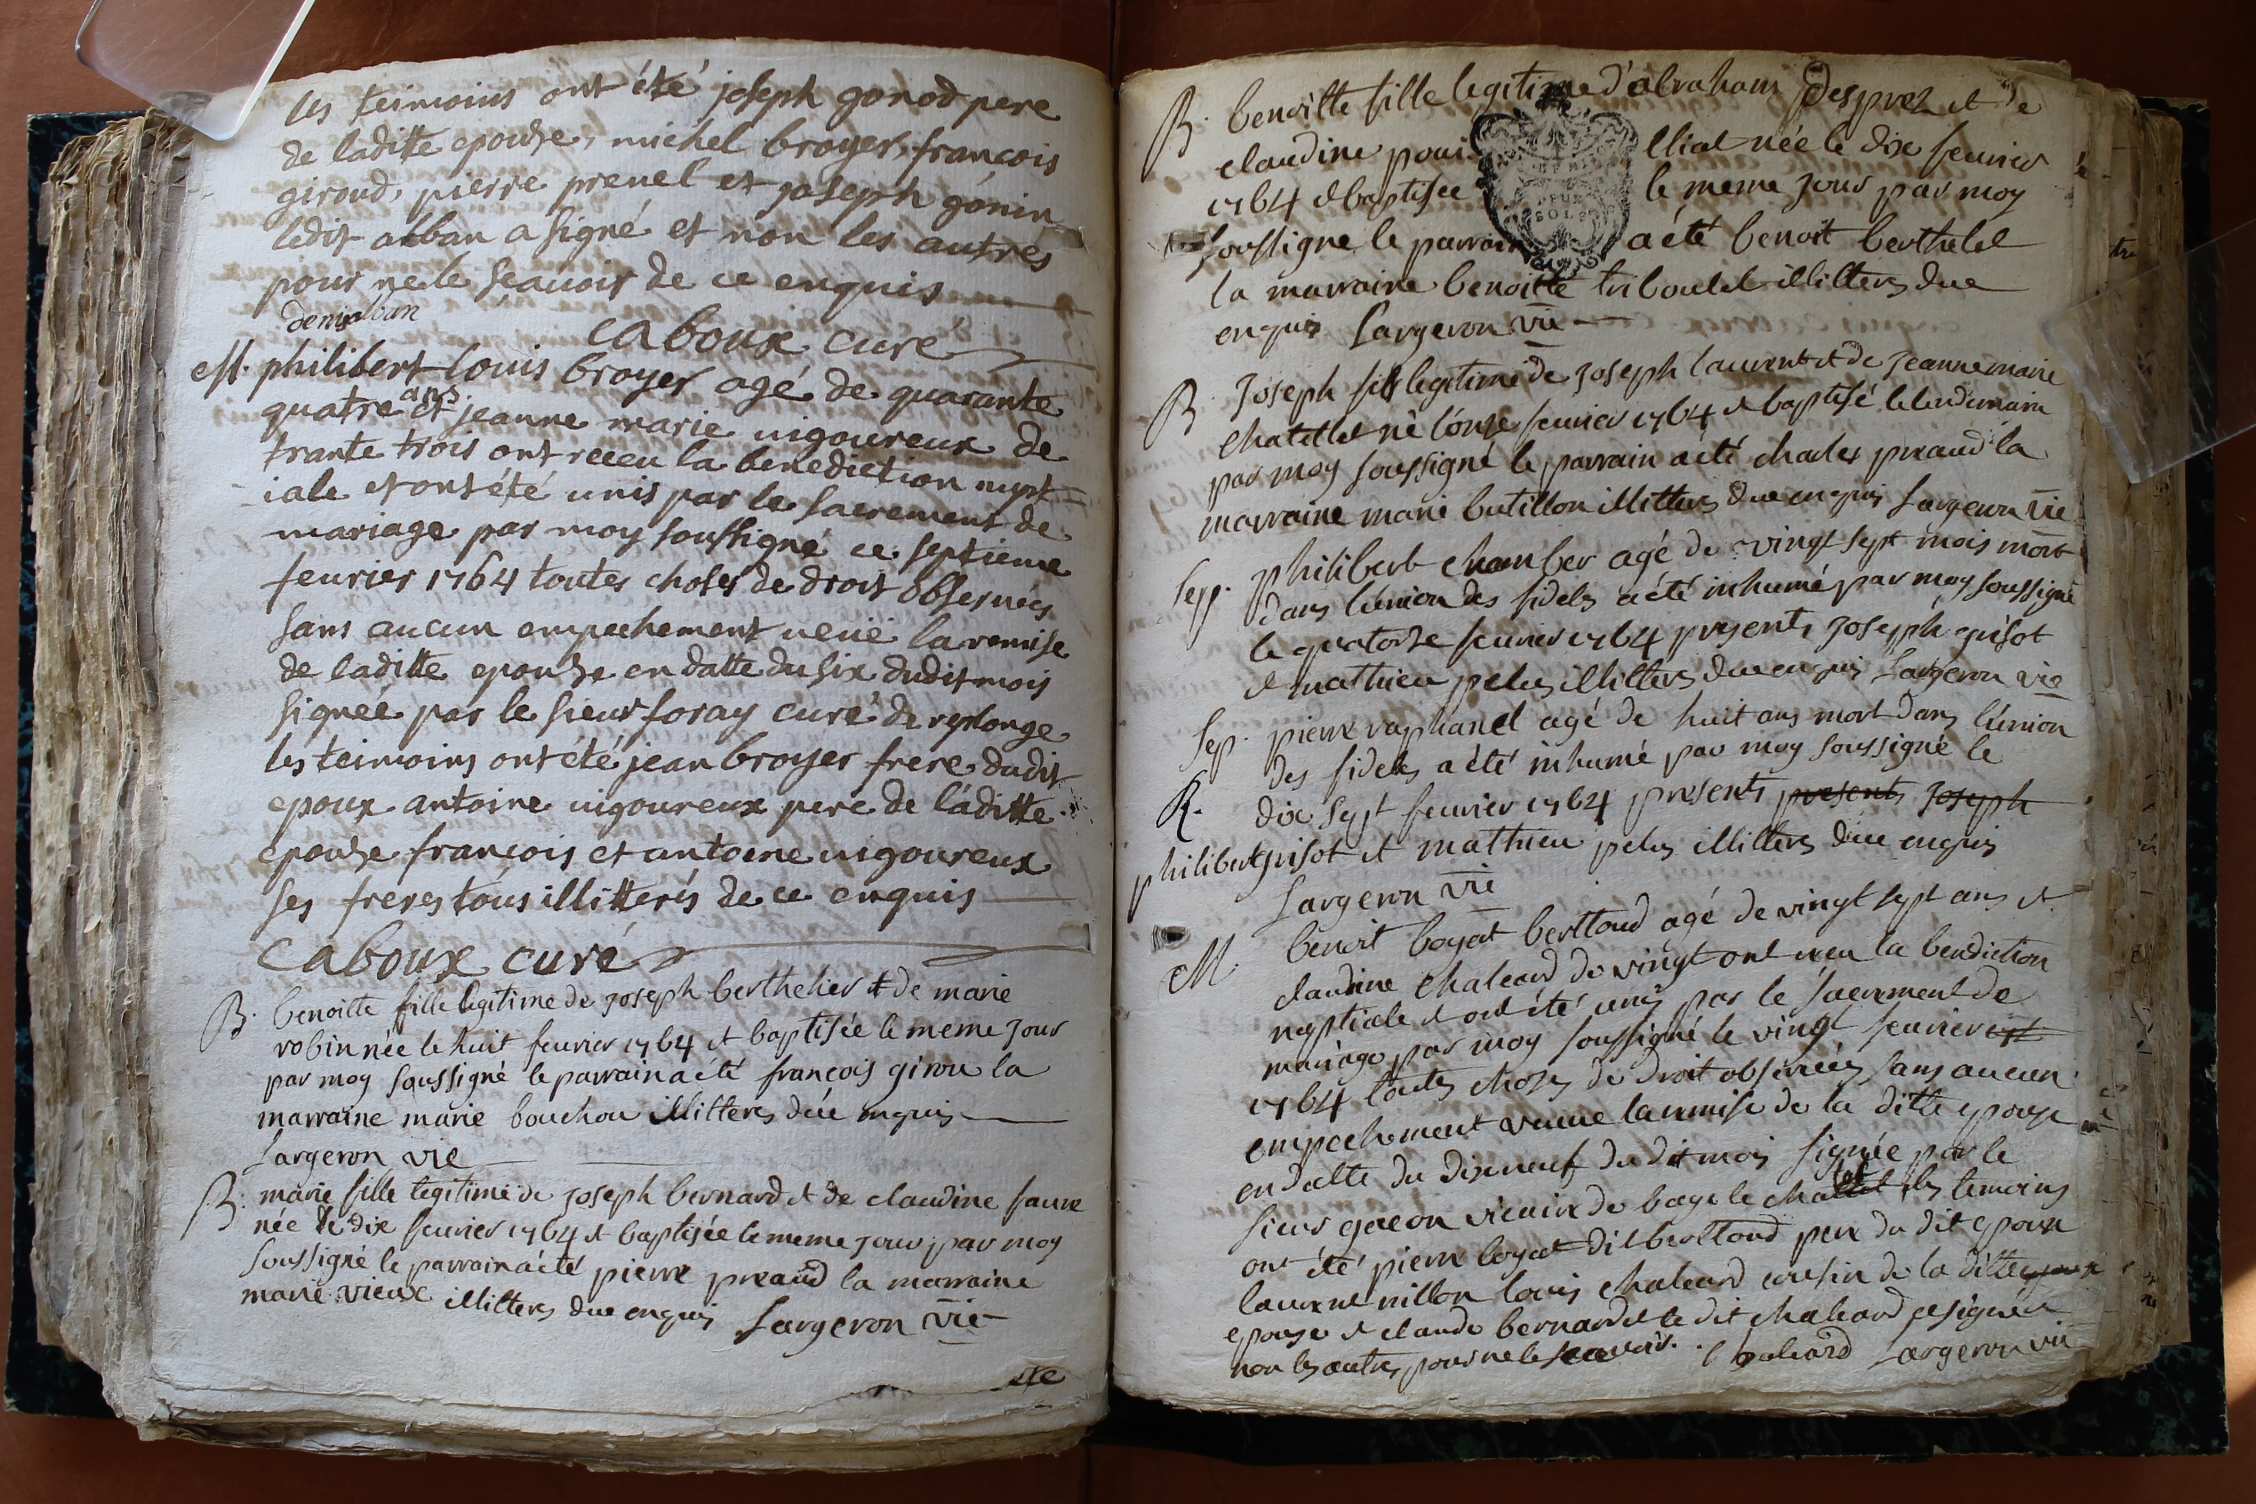 les teimoins ont été joseph gonod pere
de laditte epouze, michel broyer, françois
giroud, pierre prenel et joseph gonin
ledit alban a signé et non les autres
pour ne le scauoir de ce enquis
denis alban
caboux curé
M. philibert louis broyer agé de quarante
quatre ans et jeanne marie uigoureux de
trante trois ont receu la benediction nupt
iale et ont été unis par le sacrement de
mariage par moy soussigné ce septieme
feurier 1764 toutes choses de droit obseruées
sans aucun empechement ueüe la remise
de laditte epouze en datte du six dudit mois
signée par le sieur foray curé de replonge
les teimoins ont été jean broyer frere dudit
epoux antoine uigoureux pere de laditte
epouze françois et antoine uigoureux
ses freres tous illitterés de ce enquis
caboux curé
B. benoitte fille legitime de joseph berthelier et de marie
robin née le huit feurier 1764 et baptisée le meme jour
par moy soussigné le parrain a été françois girou la
marraine marie bouchou illitteres düe enquis
Largeron vic
B. marie fille legitime de joseph bernard et de claudine faure
née le dix feurier 1764 et baptisée le meme jour par moy
soussigné le parrain a été pierre preaud la marraine
marie vieux illitteres due enquis Largeron vic
B. benoitte fille legitime d'abraham Desprez et de
claudine poui lliat née le dix feurier
1764 et baptisée le meme jour par moy
soussigne le parrain a été benoit berthelet
la marraine benoitte triboulet illitteres due
enquis Largeron vic
B. Joseph fils legitime de joseph laurent et de jeanne marie
chatellet né l'onze feurier 1764 et baptisé le lendemain
par moy soussigné le parrain a été charles preaud la
marraine marie butillon illitteres due enquis Largeron vic
Sep. philibert chamber agé de vingt sept mois mort
dans l'union des fideles a été inhumé par moy soussigné
le quatorze feurier 1764 presents joseph grisot
et mathieu pelus illitteres due enquis Largeron vic
Sep. pierre raphanel agé de huit ans mort dans l'union
des fideles a été inhumé par moy soussigné le
R. dix sept feurier 1764 presents presents joseph
philibert grisot et mathieu pelus illitteres due enquis
Largeron vic
M. benoit boyat berttoud agé de vingt sept ans et
claudine chaleard de vingt ont receu la benediction
nuptiale et ont été unis par le sacrement de
mariage par moy soussigné le vingt feurier
1764 toutes choses de droit obseruées sans aucun
empechement veüe la remise de la ditte epouse
en datte du dixneuf du dit mois signée par le
sieur gacon vicaire de bage le chattel les temoins
ont été pierre boyat dit berttoud pere du dit epoux
laurent nillon louis chaleard cousin de la ditte
epouse et claude bernard le dit chaleard a signé et
non les autres pour ne le scavoir. l chaleard Largeron vic